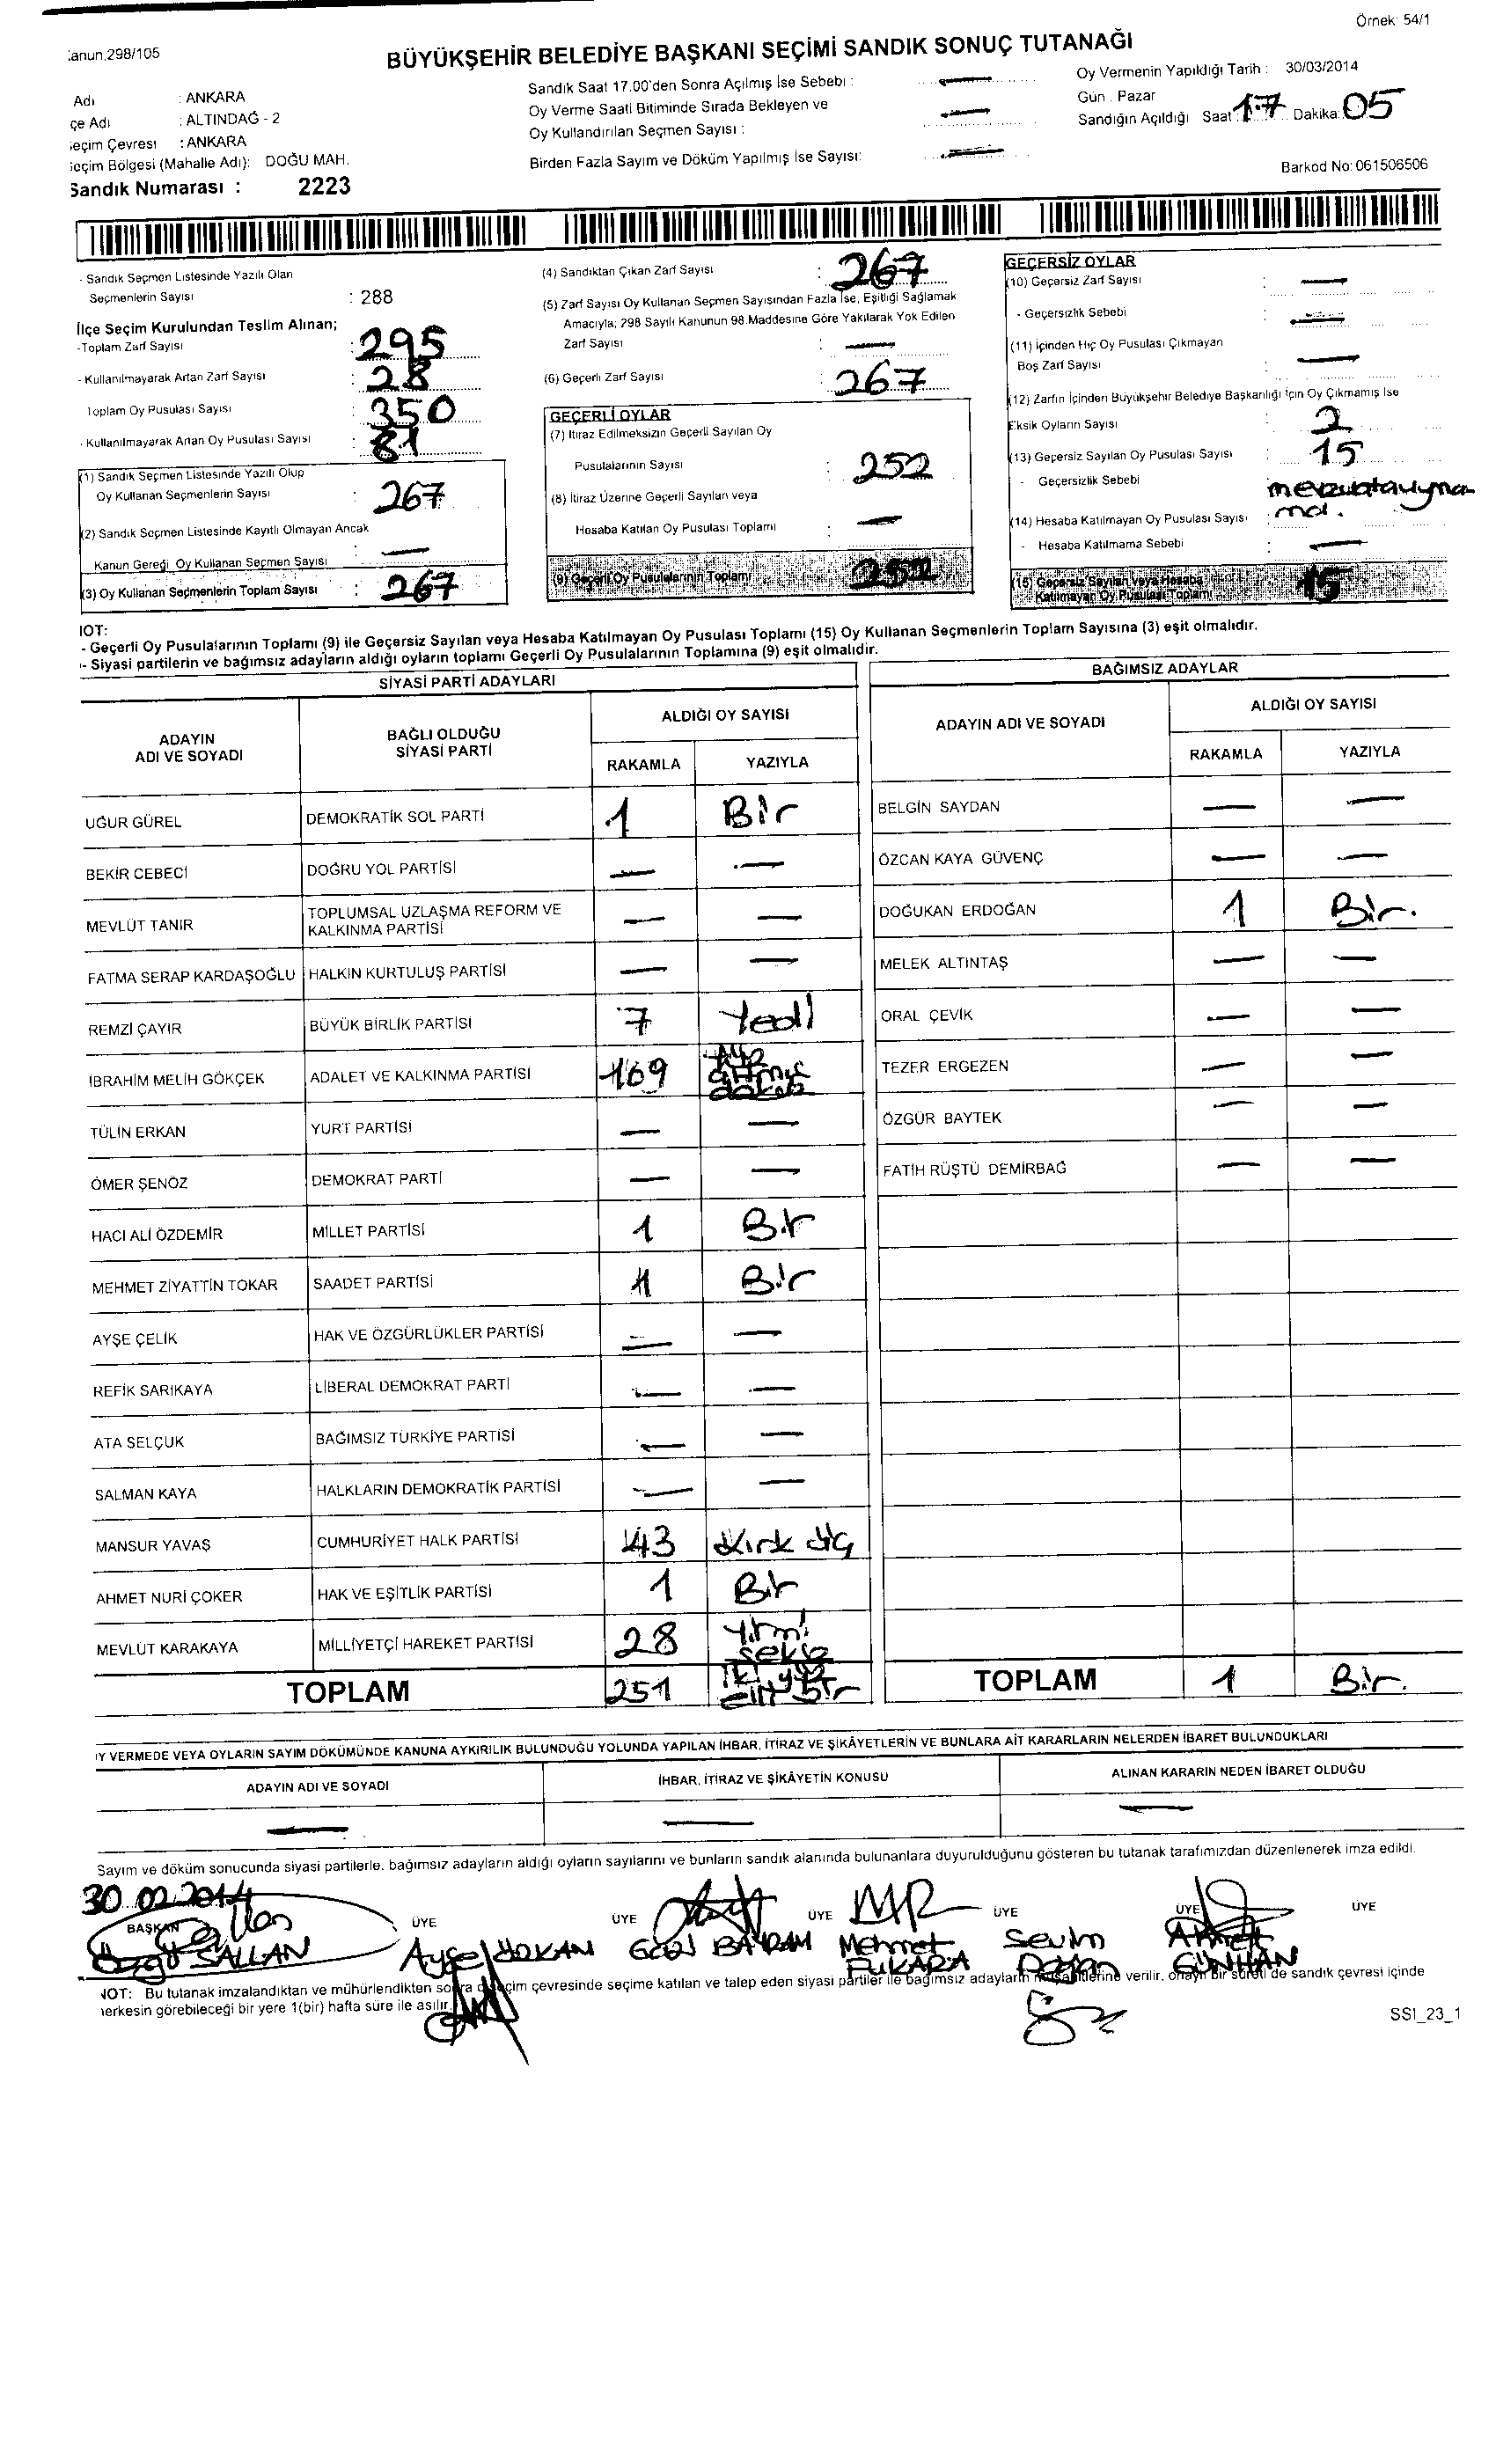 Örnek: 54/1
anun,298/105
BÜYÜKŞEHİR BELEDİYE BAŞKANI SEÇİMİ SANDIK SONUÇ TUTANAĞI
Adı : ANKARA
çe Adı : ALTINDAĞ - 2
eçim Çevresi : ANKARA
eçim Bölgesi (Mahalle Adı): DOĞU MAH.
Sandık Numarası : 2223
Sandık Saat 17.00'den Sonra Açılmış İse Sebebi : —
Oy Verme Saati Bitiminde Sırada Bekleyen ve
Oy Kullandırılan Seçmen Sayısı : —
Birden Fazla Sayım ve Döküm Yapılmış İse Sayısı: —
Oy Vermenin Yapıldığı Tarih : 30/03/2014
Gün . Pazar
Sandığın Açıldığı Saat 17 Dakika: 05
Barkod No: 061506506
- Sandık Seçmen Listesinde Yazılı Olan
Seçmenlerin Sayısı : 288
İlçe Seçim Kurulundan Teslim Alınan;
-Toplam Zarf Sayısı : 295
- Kullanılmayarak Artan Zarf Sayısı : 28
Toplam Oy Pusulası Sayısı : 350
- Kullanılmayarak Artan Oy Pusulası Sayısı : 81
(1) Sandık Seçmen Listesinde Yazılı Olup
Oy Kullanan Seçmenlerin Sayısı : 267
(2) Sandık Seçmen Listesinde Kayıtlı Olmayan Ancak
Kanun Gereği Oy Kullanan Seçmen Sayısı : —
(3) Oy Kullanan Seçmenlerin Toplam Sayısı : 267
(4) Sandıktan Çıkan Zarf Sayısı : 267
(5) Zarf Sayısı Oy Kullanan Seçmen Sayısından Fazla İse, Eşitliği Sağlamak
Amacıyla; 298 Sayılı Kanunun 98.Maddesine Göre Yakılarak Yok Edilen
Zarf Sayısı : —
(6) Geçerli Zarf Sayısı : 267
GEÇERLİ OYLAR
(7) İtiraz Edilmeksizin Geçerli Sayılan Oy
Pusulalarının Sayısı : 252
(8) İtiraz Üzerine Geçerli Sayılan veya
Hesaba Katılan Oy Pusulası Toplamı : —
(9) Geçerli Oy Pusulalarının Toplamı 252
GEÇERSİZ OYLAR
(10) Geçersiz Zarf Sayısı : —
- Geçersizlik Sebebi : —
(11) İçinden Hiç Oy Pusulası Çıkmayan
Boş Zarf Sayısı : —
(12) Zarfın İçinden Büyükşehir Belediye Başkanlığı İçin Oy Çıkmamış İse
Eksik Oyların Sayısı : 2
(13) Geçersiz Sayılan Oy Pusulası Sayısı : 15
- Geçersizlik Sebebi
(14) Hesaba Katılmayan Oy Pusulası Sayısı :
- Hesaba Katılmama Sebebi : —
(15) Geçersiz Sayılan veya Hesaba
Katılmayan Oy Pusulası Toplamı 15
NOT:
- Geçerli Oy Pusulalarının Toplamı (9) ile Geçersiz Sayılan veya Hesaba Katılmayan Oy Pusulası Toplamı (15) Oy Kullanan Seçmenlerin Toplam Sayısına (3) eşit olmalıdır.
- Siyasi partilerin ve bağımsız adayların aldığı oyların toplamı Geçerli Oy Pusulalarının Toplamına (9) eşit olmalıdır.
SİYASİ PARTİ ADAYLARI
ADAYIN ADI VE SOYADI BAĞLI OLDUĞU SİYASİ PARTİ ALDIĞI OY SAYISI
RAKAMLA YAZIYLA
UĞUR GÜREL DEMOKRATİK SOL PARTİ 1 Bir
BEKİR CEBECİ DOĞRU YOL PARTİSİ — —
MEVLÜT TANIR TOPLUMSAL UZLAŞMA REFORM VE KALKINMA PARTİSİ — —
FATMA SERAP KARDAŞOĞLU HALKIN KURTULUŞ PARTİSİ — —
REMZİ ÇAYIR BÜYÜK BİRLİK PARTİSİ 7 Yedi
İBRAHİM MELİH GÖKÇEK ADALET VE KALKINMA PARTİSİ 169 Yüz altmış dokuz
TÜLİN ERKAN YURT PARTİSİ — —
ÖMER ŞENÖZ DEMOKRAT PARTİ — —
HACI ALİ ÖZDEMİR MİLLET PARTİSİ 1 Bir
MEHMET ZİYATTİN TOKAR SAADET PARTİSİ 1 Bir
AYŞE ÇELİK HAK VE ÖZGÜRLÜKLER PARTİSİ — —
REFİK SARIKAYA LİBERAL DEMOKRAT PARTİ — —
ATA SELÇUK BAĞIMSIZ TÜRKİYE PARTİSİ — —
SALMAN KAYA HALKLARIN DEMOKRATİK PARTİSİ — —
MANSUR YAVAŞ CUMHURİYET HALK PARTİSİ 43 Kırk üç
AHMET NURİ ÇOKER HAK VE EŞİTLİK PARTİSİ 1 Bir
MEVLÜT KARAKAYA MİLLİYETÇİ HAREKET PARTİSİ 28 Yirmi sekiz
TOPLAM 251 İki yüz elli bir
BAĞIMSIZ ADAYLAR
ADAYIN ADI VE SOYADI ALDIĞI OY SAYISI
RAKAMLA YAZIYLA
BELGİN SAYDAN — —
ÖZCAN KAYA GÜVENÇ — —
DOĞUKAN ERDOĞAN 1 Bir.
MELEK ALTINTAŞ — —
ORAL ÇEVİK — —
TEZER ERGEZEN — —
ÖZGÜR BAYTEK — —
FATİH RÜŞTÜ DEMİRBAĞ — —
TOPLAM 1 Bir.
Y VERMEDE VEYA OYLARIN SAYIM DÖKÜMÜNDE KANUNA AYKIRILIK BULUNDUĞU YOLUNDA YAPILAN İHBAR, İTİRAZ VE ŞİKÂYETLERİN VE BUNLARA AİT KARARLARIN NELERDEN İBARET BULUNDUKLARI
ADAYIN ADI VE SOYADI İHBAR, İTİRAZ VE ŞİKÂYETİN KONUSU ALINAN KARARIN NEDEN İBARET OLDUĞU
— — —
Sayım ve döküm sonucunda siyasi partilerle, bağımsız adayların aldığı oyların sayılarını ve bunların sandık alanında bulunanlara duyurulduğunu gösteren bu tutanak tarafımızdan düzenlenerek imza edildi.
30.02.2014
BAŞKAN ÜYE ÜYE ÜYE ÜYE ÜYE ÜYE
SALLAN Aysel BAYRAM Mehmet FUKARA Sevim Ahmet GÜNHAN
NOT: Bu tutanak imzalandıktan ve mühürlendikten sonra seçim çevresinde seçime katılan ve talep eden siyasi partiler ile bağımsız adayların müşahitlerine verilir, onaylı bir sureti de sandık çevresi içinde
herkesin görebileceği bir yere 1(bir) hafta süre ile asılır.
SSI_23_1